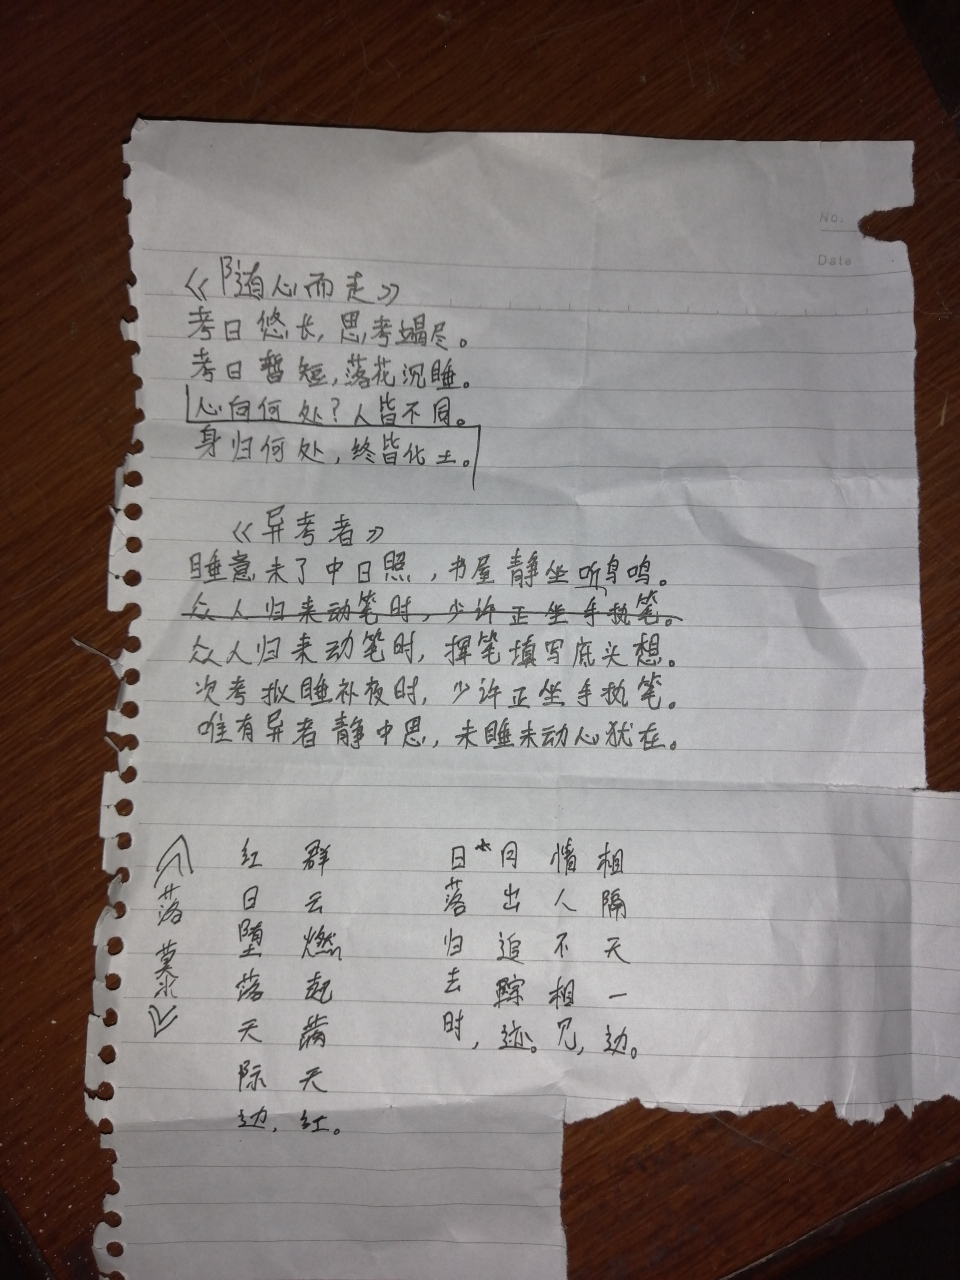 No.
Date
《随心而走》
考日悠长，思考竭尽。
考日暂短，落花沉睡。
心向何处？人皆不同。
身归何处，终皆化土。
《异考者》
睡意未了中日照，书屋静坐听鸟鸣。
众人归来动笔时，少许正坐手执笔。
众人归来动笔时，挥笔填写底头想。
次考拟睡补夜时，少许正坐手执笔。
唯有异者静中思，未睡未动心犹在。
《落幕》
红日堕落天际边，
群云燃起满天红。
日落归去时，
月出追踪迹。
情人不相见，
相隔天一边。